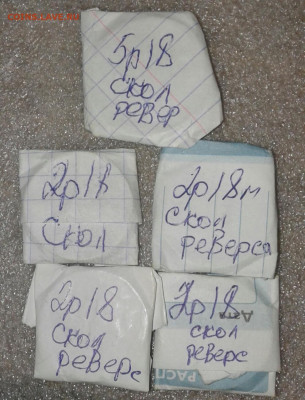 5р18
скол
ревер
2р18
Скол
2р18м
Скол
реверса
2р18
Скол
реверс
2р18
скол
реверс
РАСП